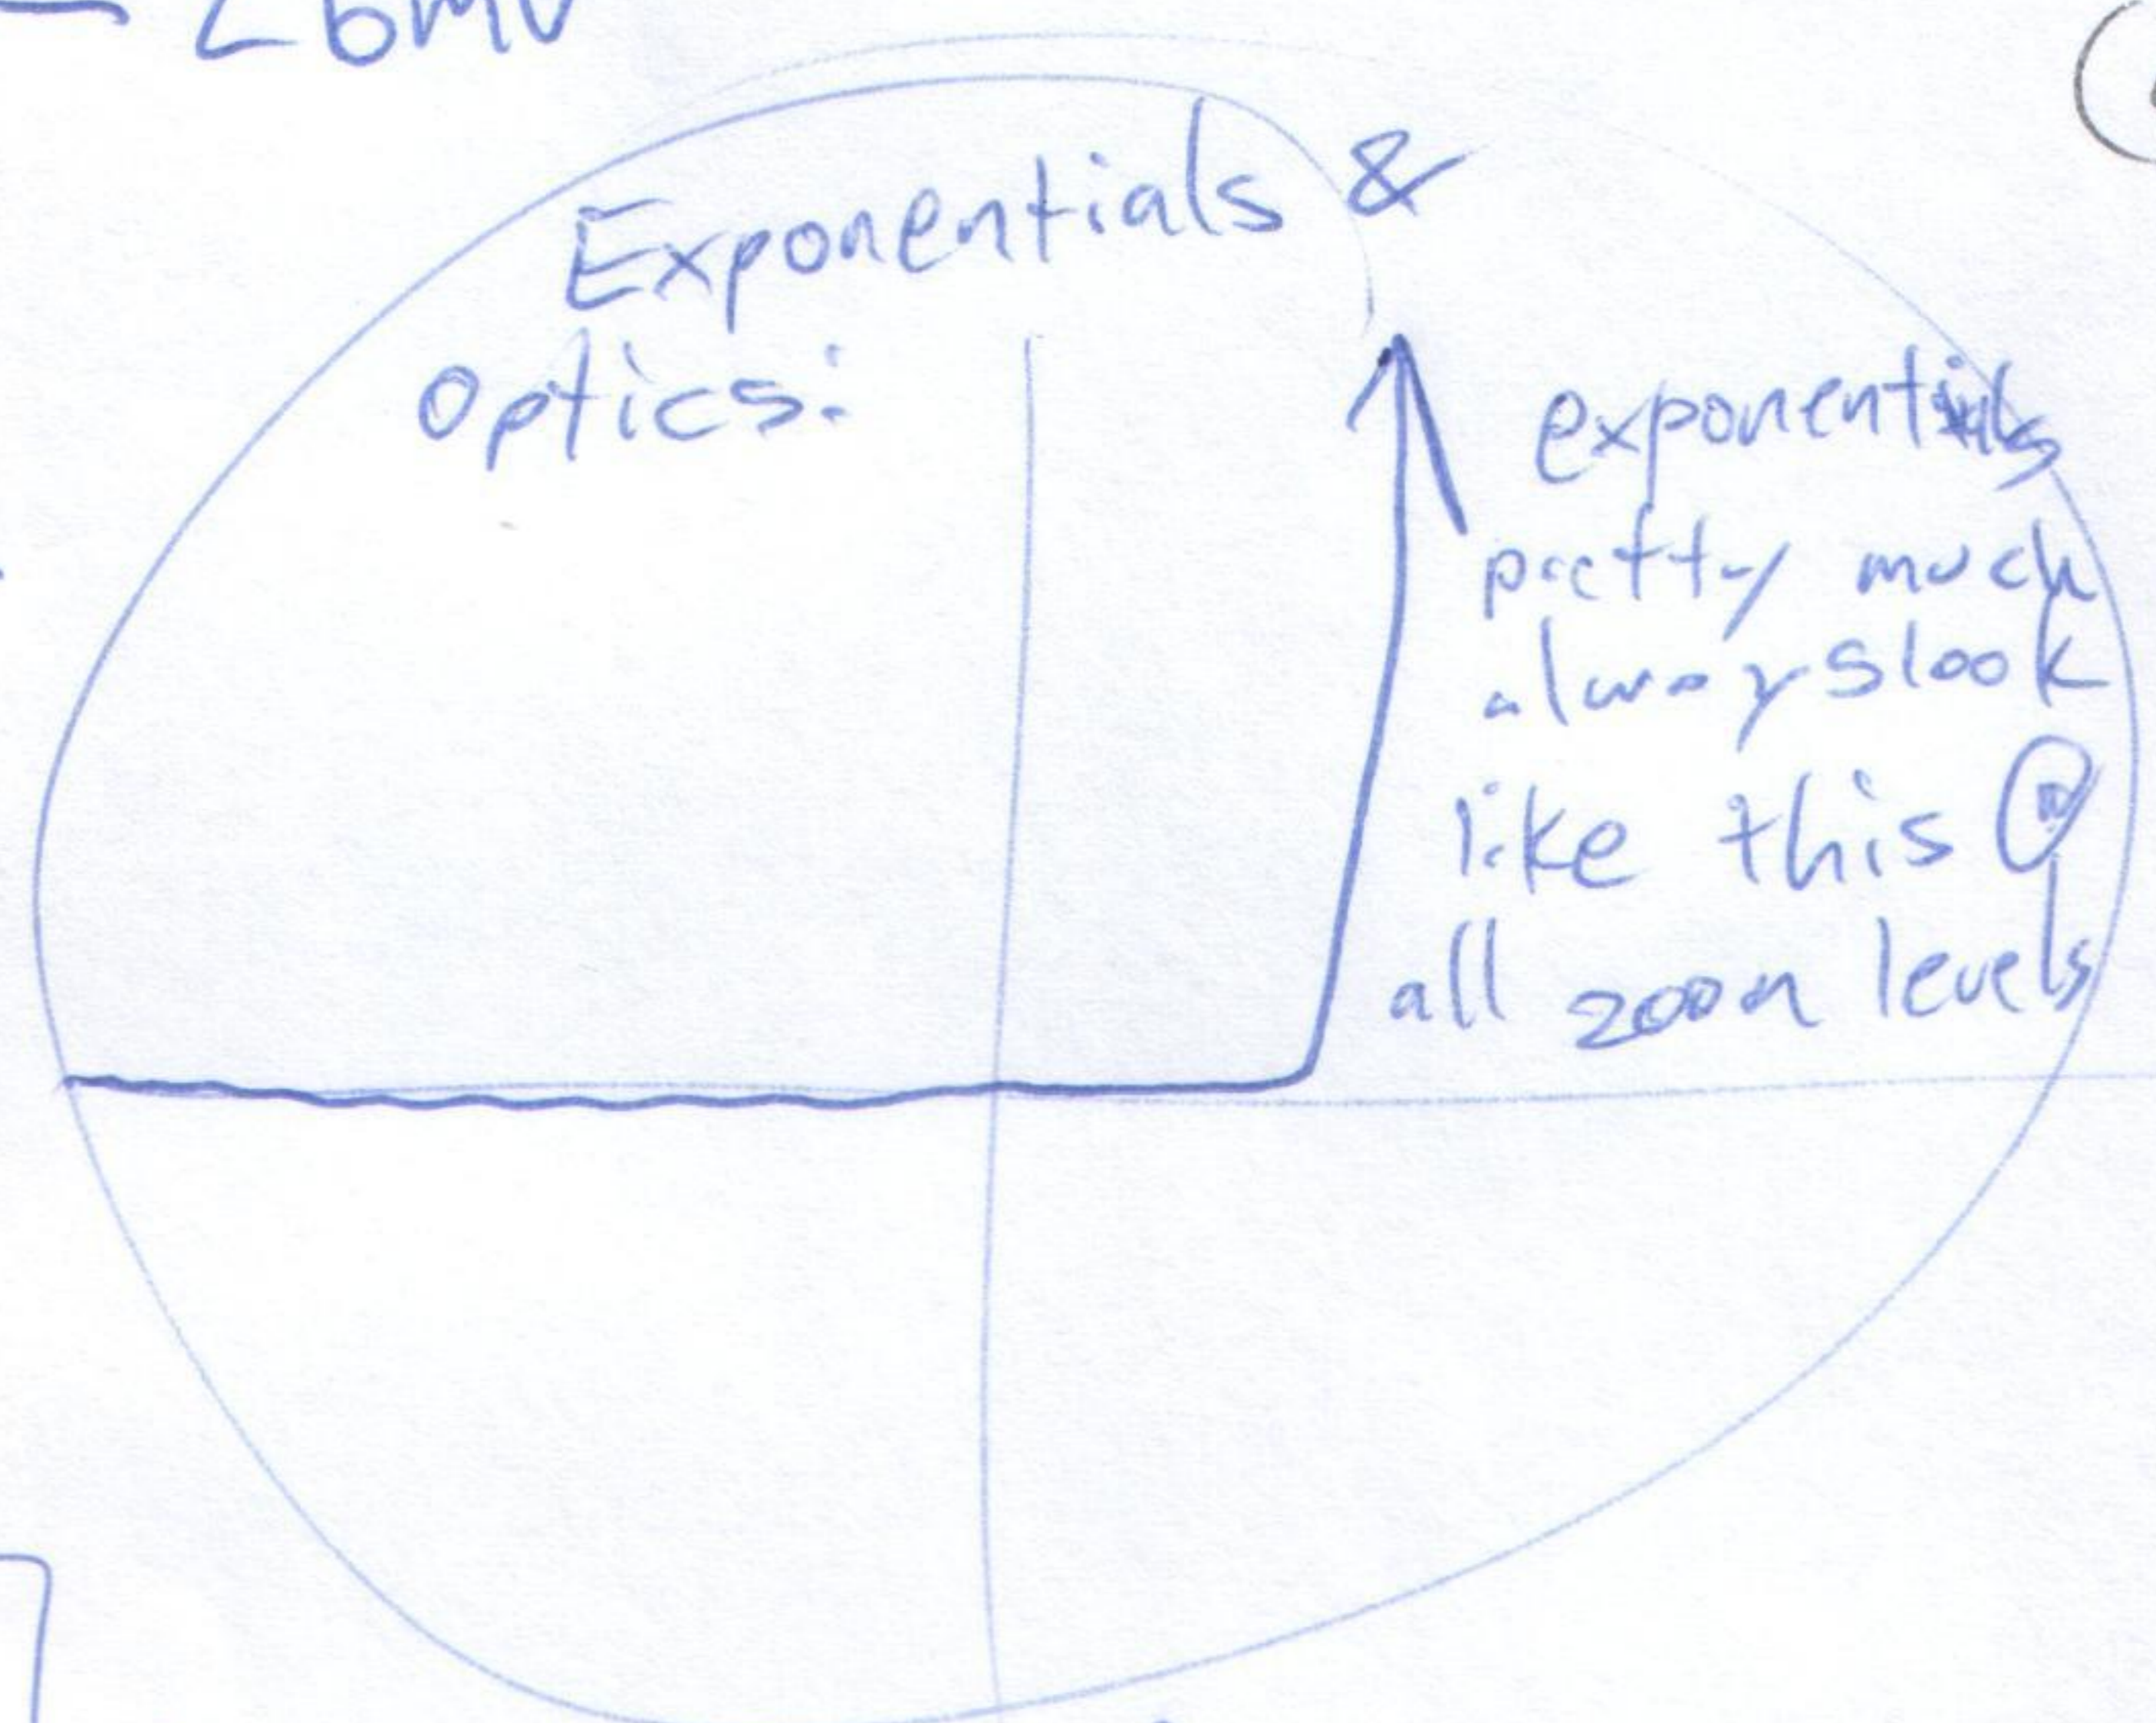 26mV
Exponentials &
Optics:
exponentials
pretty much
always look
like this @
all zoom levels